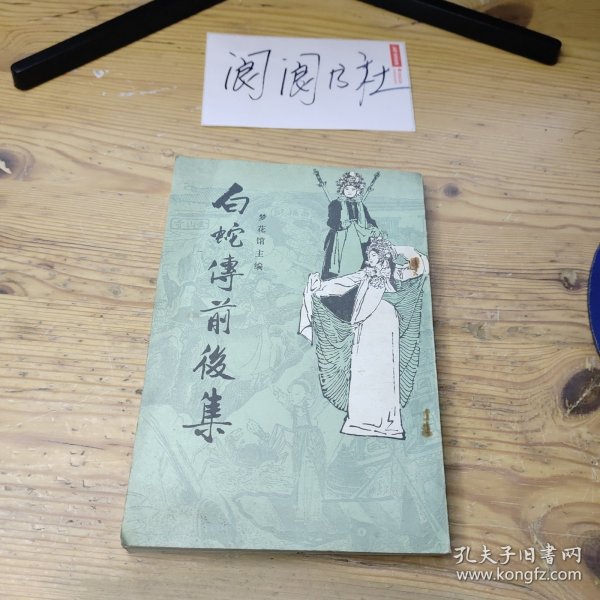 阆阆乃社
白蛇傳前後集
梦花馆主编
孔夫子旧書网
www.kongfz.com